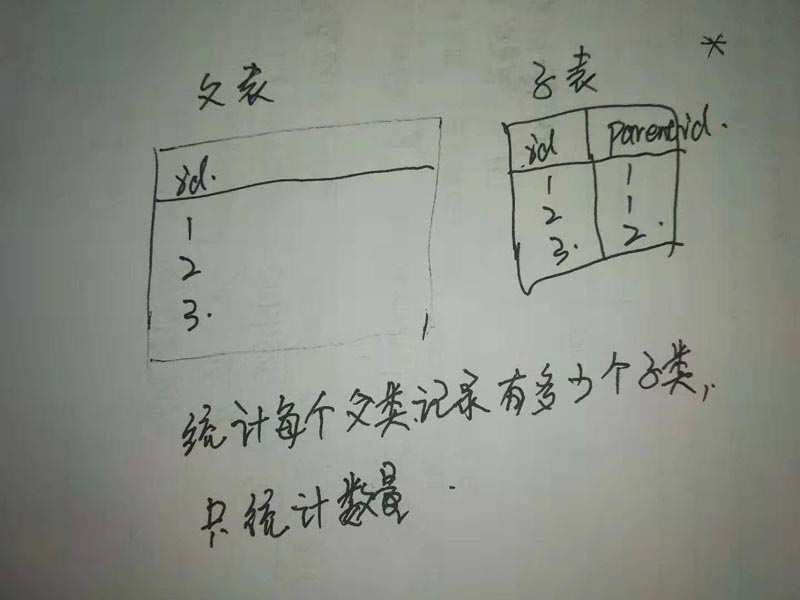 *
父表
id.
1
2
3.
子表
id parentid.
1 1
2 1
3. 2.
统计每个父类记录有多少个子类,
只统计数量.